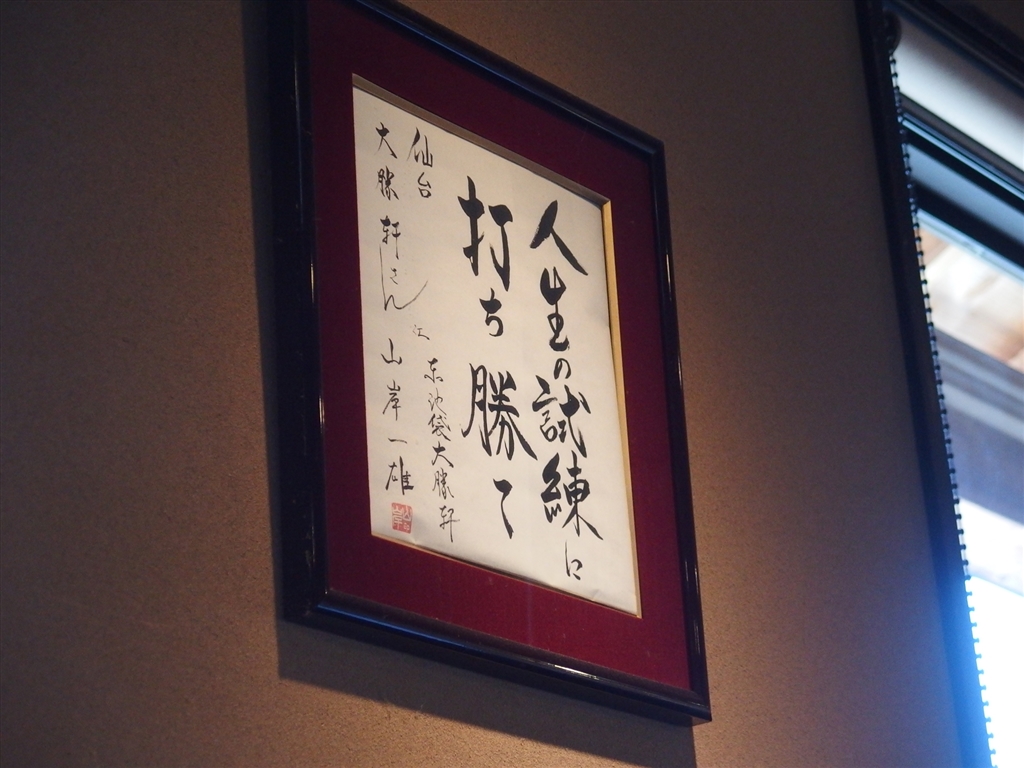 人生の試練に
打ち勝て
仙台
大勝軒さん江
東池袋大勝軒
山岸一雄